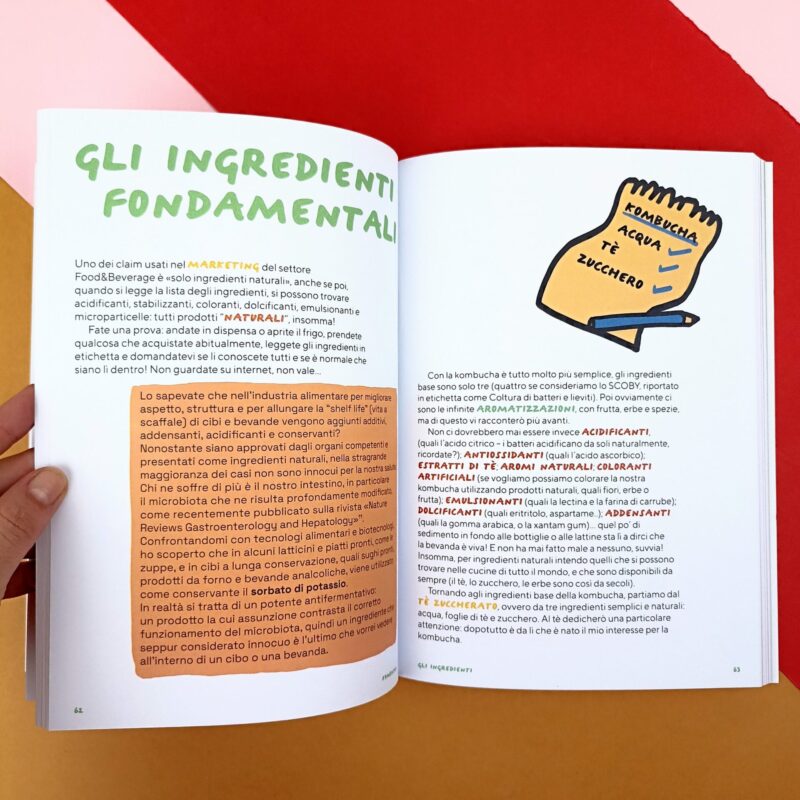 GLI INGREDIENTI
FONDAMENTALI
Uno dei claim usati nel MARKETING del settore
Food&Beverage è «solo ingredienti naturali», anche se poi,
quando si legge la lista degli ingredienti, si possono trovare
acidificanti, stabilizzanti, coloranti, dolcificanti, emulsionanti e
microparticelle: tutti prodotti "NATURALI", insomma!
Fate una prova: andate in dispensa o aprite il frigo, prendete
qualcosa che acquistate abitualmente, leggete gli ingredienti in
etichetta e domandatevi se li conoscete tutti e se è normale che
siano lì dentro! Non guardate su internet, non vale...
Lo sapevate che nell'industria alimentare per migliorare
aspetto, struttura e per allungare la "shelf life" (vita a
scaffale) di cibi e bevande vengono aggiunti additivi,
addensanti, acidificanti e conservanti?
Nonostante siano approvati dagli organi competenti e
presentati come ingredienti naturali, nella stragrande
maggioranza dei casi non sono innocui per la nostra salute.
Chi ne soffre di più è il nostro intestino, in particolare
il microbiota che ne risulta profondamente modificato,
come recentemente pubblicato sulla rivista «Nature
Reviews Gastroenterology and Hepatology".
Confrontandomi con tecnologi alimentari e biotecnologi,
ho scoperto che in alcuni latticini e piatti pronti, come le
zuppe, e in cibi a lunga conservazione, quali sughi pronti,
prodotti da forno e bevande analcoliche, viene utilizzato
come conservante il sorbato di potassio.
In realtà si tratta di un potente antifermentativo:
un prodotto la cui assunzione contrasta il corretto
funzionamento del microbiota, quindi un ingrediente che
seppur considerato innocuo è l'ultimo che vorrei vedere
all'interno di un cibo o una bevanda.
62
KOMBUCHA
ACQUA
TÈ
ZUCCHERO
Con la kombucha è tutto molto più semplice, gli ingredienti
base sono solo tre (quattro se consideriamo lo SCOBY, riportato
in etichetta come Coltura di batteri e lieviti). Poi ovviamente ci
sono le infinite AROMATIZZAZIONI, con frutta, erbe e spezie,
ma di questo vi racconterò più avanti.
Non ci dovrebbero mai essere invece ACIDIFICANTI,
(quali l'acido citrico – i batteri acidificano da soli naturalmente,
ricordate?); ANTIOSSIDANTI (quali l'acido ascorbico);
ESTRATTI DI TÈ; AROMI NATURALI; COLORANTI
ARTIFICIALI (se vogliamo possiamo colorare la nostra
kombucha utilizzando prodotti naturali, quali fiori, erbe o
frutta); EMULSIONANTI (quali la lectina e la farina di carrube);
DOLCIFICANTI (quali eritritolo, aspartame..); ADDENSANTI
(quali la gomma arabica, o la xantam gum)... quel po' di
sedimento in fondo alle bottiglie o alle lattine sta lì a dirci che
la bevanda è viva! E non ha mai fatto male a nessuno, suvvia!
Insomma, per ingredienti naturali intendo quelli che si possono
trovare nelle cucine di tutto il mondo, e che sono disponibili da
sempre (il tè, lo zucchero, le erbe sono così da secoli).
Tornando agli ingredienti base della kombucha, partiamo dal
TÈ ZUCCHERATO, ovvero da tre ingredienti semplici e naturali:
acqua, foglie di tè e zucchero. Al tè dedicherò una particolare
attenzione: dopotutto è da lì che è nato il mio interesse per la
kombucha.
GLI INGREDIENTI
63